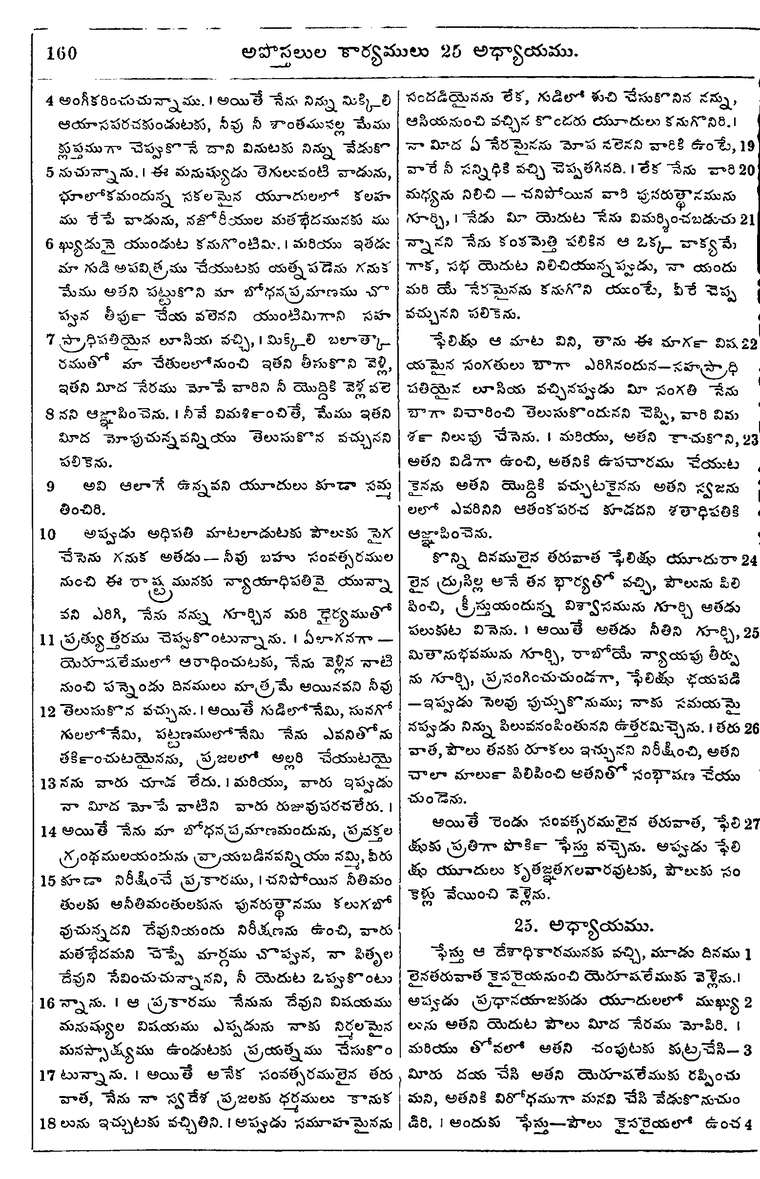 160 అపొస్తలుల కార్యములు 25 అధ్యాయము.
4 అంగీకరించుచున్నాము. । అయితే నేను నిన్ను మిక్కిలి
ఆయాసపరచకుండుటకు, నీవు నీ శాంతమువల్ల మేము
క్లుప్తముగా చెప్పుకొనే దాని వినుటకు నిన్ను వేడుకొ
5 నుచున్నాను. । ఈ మనుష్యుడు తెగులువంటి వాడును,
భూలోకమందున్న సకలమైన యూదులలో కలహ
ము రేపే వాడును, నజోరీయుల మతభేదమునకు ము
6 ఖ్యుడునై యుండుట కనుగొంటిమి. । మరియు ఇతడు
మా గుడి అపవిత్రము చేయుటకు యత్నపడెను గనుక
మేము అతని పట్టుకొని మా బోధనప్రమాణము చొ
ప్పున తీర్పు చేయ వలెనని యుంటిమిగాని సహ
7 స్రాధిపతియైన లూసియ వచ్చి, । మిక్కిలి బలాత్కా
రముతో మా చేతులలోనుంచి ఇతని తీసుకొని వెళ్లి,
ఇతని మీద నేరము మోపే వారిని నీ యొద్దికి వెళ్ల వలె
8 నని ఆజ్ఞాపించెను. । నీవే విమర్శించితే, మేము ఇతని
మీద మోపుచున్నవన్నియు తెలుసుకొన వచ్చునని
పలికెను.
9 అవి ఆలాగే ఉన్నవని యూదులు కూడా సమ్మ
తించిరి.
10 అప్పుడు అధిపతి మాటలాడుటకు పౌలుకు సైగ
చేసెను గనుక అతడు — నీవు బహు సంవత్సరముల
నుంచి ఈ రాష్ట్రమునకు న్యాయాధిపతివై యున్నా
వని ఎరిగి, నేను నన్ను గూర్చిన మరి ధైర్యముతో
11 ప్రత్యుత్తరము చెప్పుకొంటున్నాను. । ఏలాగనగా —
యెరూషలేములో ఆరాధించుటకు, నేను వెళ్లిన నాటి
నుంచి పన్నెండు దినములు మాత్రమే అయినవని నీవు
12 తెలుసుకొన వచ్చును. । అయితే గుడిలోనేమి, సునగో
గులలోనేమి, పట్టణములోనేమి నేను ఎవనితోను
తర్కించుటయైనను, ప్రజలలో అల్లరి చేయుటయై
13 నను వారు చూడ లేదు. । మరియు, వారు ఇప్పుడు
నా మీద మోపే వాటిని వారు రుజువుపరచలేరు. ।
14 అయితే నేను మా బోధనప్రమాణమందును, ప్రవక్తల
గ్రంథములయందును వ్రాయబడినవన్నియు నమ్మి, వీరు
15 కూడా నిరీక్షించే ప్రకారము, । చనిపోయిన నీతిమం
తులకు అనీతిమంతులకును పునరుత్థానము కలుగబో
వుచున్నదని దేవునియందు నిరీక్షణను ఉంచి, వారు
మతభేదమని చెప్పే మార్గము చొప్పున, నా పితృల
దేవుని సేవించుచున్నానని, నీ యెదుట ఒప్పుకొంటు
16 న్నాను. । ఆ ప్రకారము నేనును దేవుని విషయము
మనుష్యుల విషయము ఎప్పడును నాకు నిర్మలమైన
మనస్సాక్ష్యము ఉండుటకు ప్రయత్నము చేసుకొం
17 టున్నాను. । అయితే అనేక సంవత్సరములైన తరు
వాత, నేను నా స్వదేశ ప్రజలకు ధర్మములు కానుక
18 లును ఇచ్చుటకు వచ్చితిని. । అప్పుడు సమూహమైనను
సందడియైనను లేక, గుడిలో శుచి చేసుకొనిన నన్ను,
ఆసియనుంచి వచ్చిన కొందరు యూదులు కనుగొనిరి. ।
నా మీద ఏ నేరమైనను మోప వలెనని వారికి ఉంటే, 19
వారే నీ సన్నిధికి వచ్చి చెప్పతగినది. । లేక నేను వారి 20
మధ్యను నిలిచి — చనిపోయిన వారి పునరుత్థానమును
గూర్చి, । నేడు మీ యెదుట నేను విమర్శించబడుచు 21
న్నానని నేను కంఠమెత్తి పలికిన ఆ ఒక్క వాక్యమే
గాక, సభ యెదుట నిలిచియున్నప్పుడు, నా యందు
మరి యే నేరమైనను కనుగొని యుంటే, వీరే చెప్ప
వచ్చునని పలికెను.
ఫేలిక్షు ఆ మాట విని, తాను ఈ మార్గ విష 22
యమైన సంగతులు బాగా ఎరిగినందున—సహస్రాధి
పతియైన లూసియ వచ్చినప్పుడు మీ సంగతి నేను
బాగా విచారించి తెలుసుకొందునని చెప్పి, వారి విమ
ర్శ నిలుపు చేసెను. । మరియు, అతని కాచుకొని, 23
అతని విడిగా ఉంచి, అతనికి ఉపచారము చేయుట
కైనను అతని యొద్దికి వచ్చుటకైనను అతని స్వజను
లలో ఎవరినిని ఆతంకపరచ కూడదని శతాధిపతికి
ఆజ్ఞాపించెను.
కొన్ని దినములైన తరువాత ఫేలిక్షు యూదురా 24
లైన ద్రుసిల్ల అనే తన భార్యతో వచ్చి, పౌలును పిలి
పించి, క్రీస్తుయందున్న విశ్వాసమును గూర్చి అతడు
పలుకుట వినెను. । అయితే అతడు నీతిని గూర్చి, 25
మితానుభవమును గూర్చి, రాబోయే న్యాయపు తీర్పు
ను గూర్చి, ప్రసంగించుచుండగా, ఫేలిక్షు భయపడి
—ఇప్పుడు సెలవు పుచ్చుకొనుము; నాకు సమయమై
నప్పుడు నిన్ను పిలువనంపింతునని ఉత్తరమిచ్చెను. । తరు 26
వాత, పౌలు తనకు రూకలు ఇచ్చునని నిరీక్షించి, అతని
చాలా మారులు పిలిపించి అతనితో సంభాషణ చేయు
చుండెను.
అయితే రెండు సంవత్సరములైన తరువాత, ఫేలి 27
క్షుకు ప్రతిగా పొర్కి ఫేస్తు వచ్చెను. అప్పుడు ఫేలి
క్షు యూదులు కృతజ్ఞతగలవారవుటకు, పౌలుకు సం
కెళ్లు వేయించి వెళ్లెను.
25. అధ్యాయము.
ఫేస్తు ఆ దేశాధికారమునకు వచ్చి, మూడు దినము 1
లైనతరువాత కైసరైయనుంచి యెరూషలేముకు వెళ్లెను. ।
అప్పుడు ప్రధానయాజకుడు యూదులలో ముఖ్యు 2
లును అతని యెదుట పౌలు మీద నేరము మోపిరి. ।
మరియు తోవలో అతని చంపుటకు కుట్రచేసి— 3
మీరు దయ చేసి అతని యెరూషలేముకు రప్పించు
మని, అతనికి విరోధముగా మనవి చేసి వేడుకొనుచుం
డిరి. । అందుకు ఫేస్తు—పౌలు కైసరైయలో ఉంచ 4